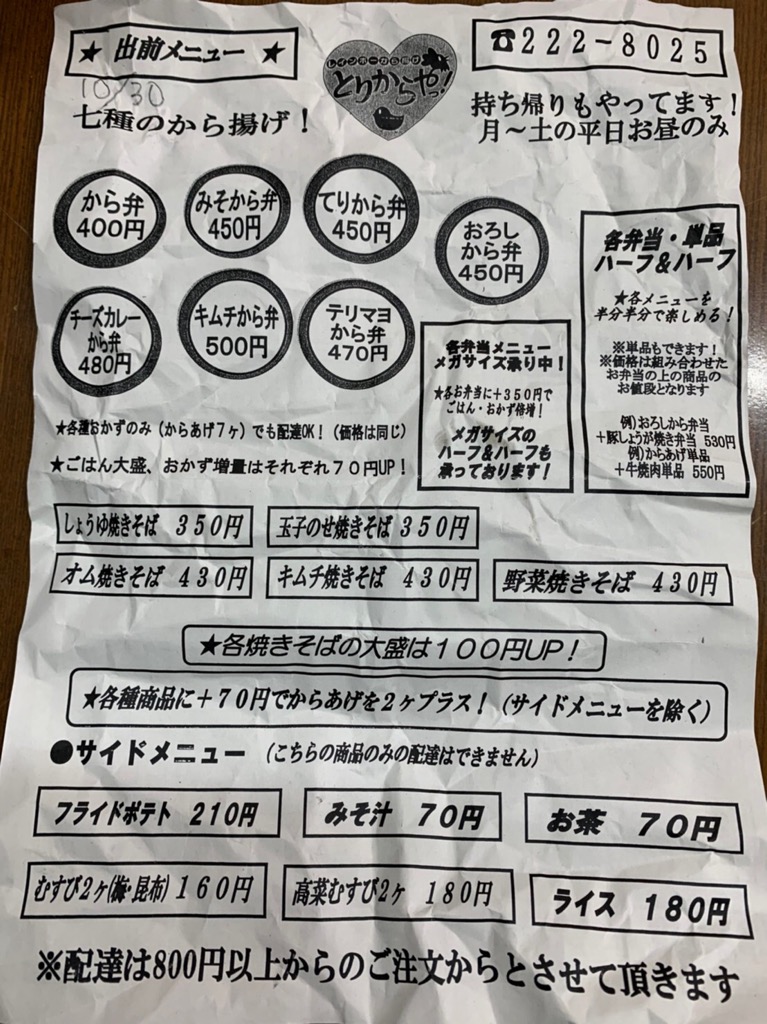 ★ 出前メニュー ★
レインボーから揚げ
とりからやっ!
☎222-8025
10/30
七種のから揚げ!
持ち帰りもやってます!
月~土の平日お昼のみ
から弁
400円
みそから弁
450円
てりから弁
450円
おろし
から弁
450円
チーズカレー
から弁
480円
キムチから弁
500円
テリマヨ
から弁
470円
各弁当メニュー
メガサイズ承り中!
★各お弁当に+350円で
ごはん・おかず倍増!
メガサイズの
ハーフ&ハーフも
承っております!
各弁当・単品
ハーフ&ハーフ
★各メニューを
半分半分で楽しめる!
※単品もできます!
※価格は組み合わせた
お弁当の上の商品の
お値段となります
例)おろしから弁当
+豚しょうが焼き弁当 530円
例)からあげ単品
+牛焼肉単品 550円
★各種おかずのみ(からあげ7ヶ)でも配達OK!(価格は同じ)
★ごはん大盛、おかず増量はそれぞれ70円UP!
しょうゆ焼きそば 350円
玉子のせ焼きそば 350円
オム焼きそば 430円
キムチ焼きそば 430円
野菜焼きそば 430円
★各焼きそばの大盛は100円UP!
★各種商品に+70円でからあげを2ヶプラス!(サイドメニューを除く)
●サイドメニュー (こちらの商品のみの配達はできません)
フライドポテト 210円
みそ汁 70円
お茶 70円
むすび2ヶ(梅・昆布)160円
高菜むすび2ヶ 180円
ライス 180円
※配達は800円以上からのご注文からとさせて頂きます